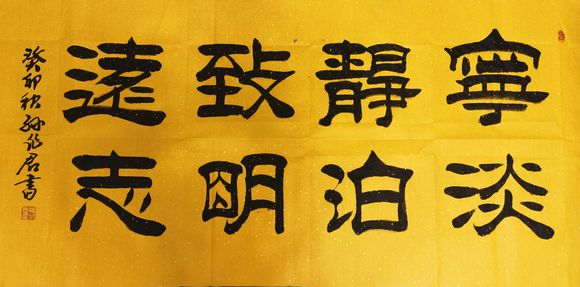 寧靜致遠
淡泊明志
癸卯秋孫君書